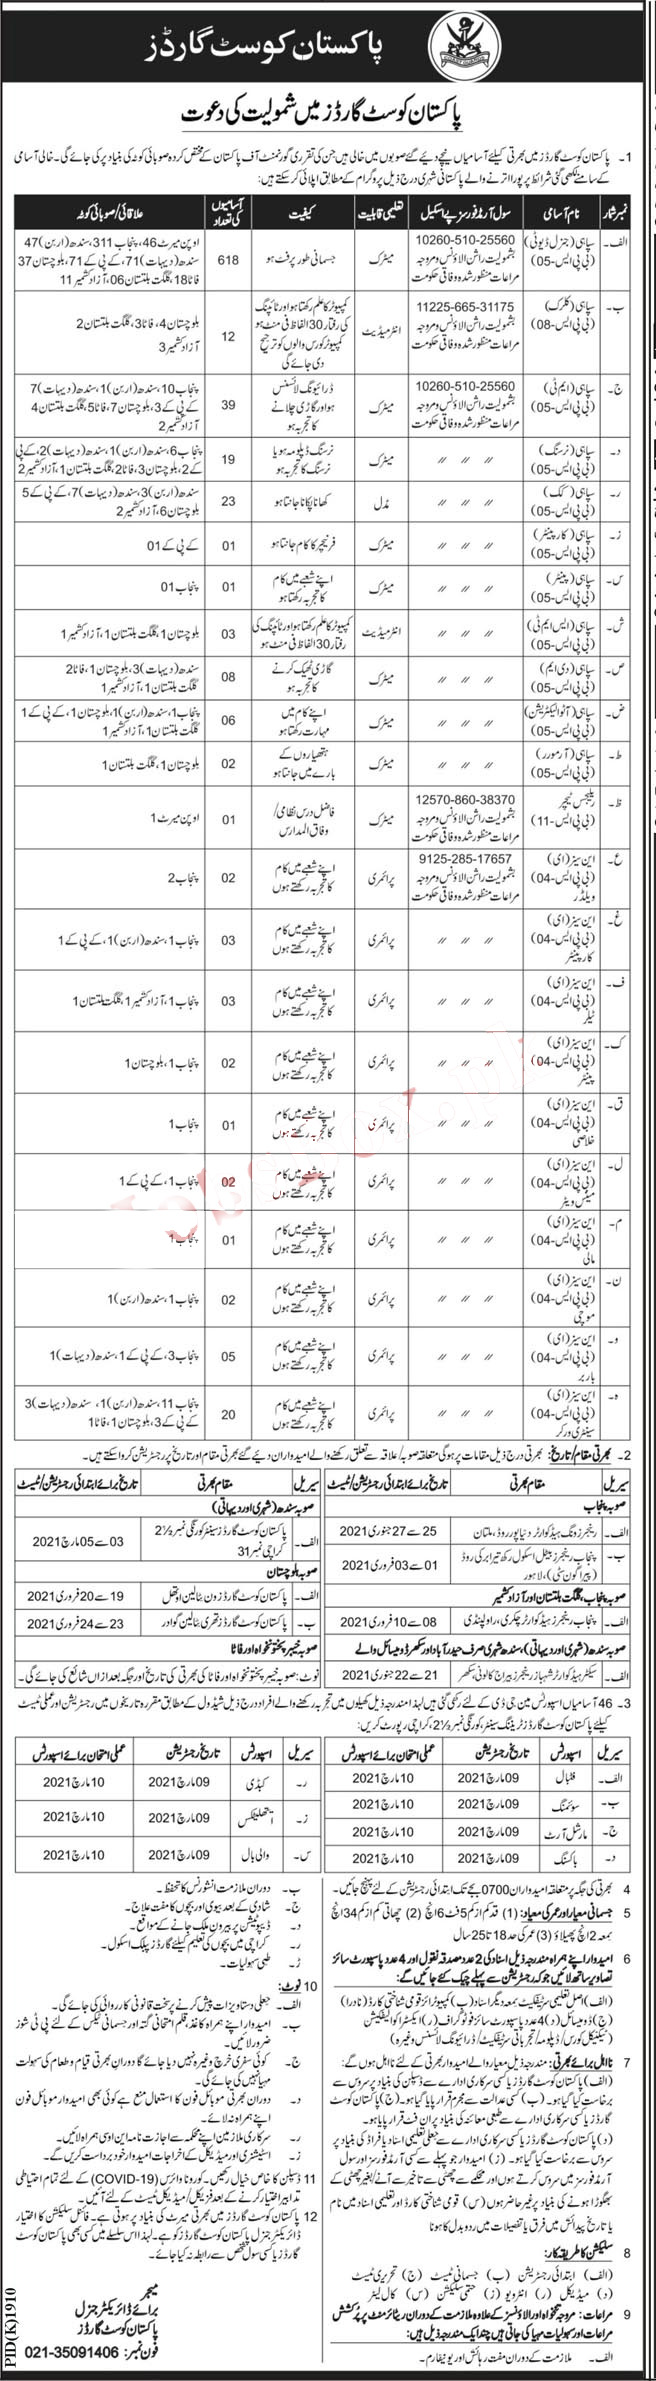 پاکستان کوسٹ گارڈز
پاکستان کوسٹ گارڈز میں شمولیت کی دعوت
1۔ پاکستان کوسٹ گارڈز میں بھرتی کیلئے آسامیاں نیچے دیئے گئے صوبوں میں خالی ہیں جن کی تقرری گورنمنٹ آف پاکستان کے مختص کردہ صوبائی کوٹہ کی بنیاد پر کی جائے گی۔ خالی آسامی
کے سامنے لکھی گئی شرائط پر پورا اترنے والے پاکستانی شہری درج ذیل پروگرام کے مطابق اپلائی کر سکتے ہیں:
نمبر شمار نام آسامی سول آرمڈ فورسز پے اسکیل تعلیمی قابلیت کیفیت آسامیوں کی تعداد علاقائی/صوبائی کوٹہ
الف۔ سپاہی (جنرل ڈیوٹی) (بی پی ایس-05) 10260-510-25560 بشمولیت راشن الاؤنس و مروجہ مراعات منظور شدہ وفاقی حکومت میٹرک جسمانی طور پر فٹ ہو 618 اوپن میرٹ 46، پنجاب 311، سندھ (اربن) 47 سندھ (دیہات) 71، کے پی کے 71، بلوچستان 37 فاٹا 18، گلگت بلتستان 06، آزاد کشمیر 11
ب۔ سپاہی (کلرک) (بی پی ایس-08) 11225-665-31175 بشمولیت راشن الاؤنس و مروجہ مراعات منظور شدہ وفاقی حکومت انٹرمیڈیٹ کمپیوٹر کا علم رکھتا ہو اور ٹائپنگ کی رفتار 30 الفاظ فی منٹ ہو کمپیوٹر کورس والوں کو ترجیح دی جائے گی 12 بلوچستان 4، فاٹا 3، گلگت بلتستان 2 آزاد کشمیر 3
ج۔ سپاہی (ایم ٹی) (بی پی ایس-05) 10260-510-25560 بشمولیت راشن الاؤنس و مروجہ مراعات منظور شدہ وفاقی حکومت میٹرک ڈرائیونگ لائسنس ہو اور گاڑی چلانے کا تجربہ ہو 39 پنجاب 10، سندھ (اربن) 1، سندھ (دیہات) 7 کے پی کے 3، بلوچستان 7، فاٹا 5، گلگت بلتستان 4 آزاد کشمیر 2
د۔ سپاہی (نرسنگ) (بی پی ایس-05) 〃 〃 〃 میٹرک نرسنگ ڈپلومہ ہو یا نرسنگ کا تجربہ ہو 19 پنجاب 6، سندھ (اربن) 1، سندھ (دیہات) 2، کے پی کے 2، بلوچستان 3، فاٹا 2، گلگت بلتستان 1، آزاد کشمیر 2
ر۔ سپاہی (کک) (بی پی ایس-05) 〃 〃 〃 مڈل کھانا پکانا جانتا ہو 23 سندھ (اربن) 3، سندھ (دیہات) 7، کے پی کے 5 بلوچستان 6، آزاد کشمیر 2
ز۔ سپاہی (کارپینٹر) (بی پی ایس-05) 〃 〃 〃 میٹرک فرنیچر کا کام جانتا ہو 01 کے پی کے 01
س۔ سپاہی (پینٹر) (بی پی ایس-05) 〃 〃 〃 میٹرک اپنے شعبے میں کام کا تجربہ رکھتا ہو 01 پنجاب 01
ش۔ سپاہی (ایس ایم ٹی) (بی پی ایس-05) 〃 〃 〃 انٹرمیڈیٹ کمپیوٹر کا علم رکھتا ہو اور ٹائپنگ کی رفتار 30 الفاظ فی منٹ ہو 03 بلوچستان 1، گلگت بلتستان 1، آزاد کشمیر 1
ص۔ سپاہی (ڈی ایم) (بی پی ایس-05) 〃 〃 〃 میٹرک گاڑی ٹھیک کرنے کا تجربہ ہو 08 سندھ (دیہات) 3، بلوچستان 1، فاٹا 2 گلگت بلتستان 1، آزاد کشمیر 1
ض۔ سپاہی (آٹو الیکٹریشن) (بی پی ایس-05) 〃 〃 〃 میٹرک اپنے کام میں مہارت رکھتا ہو 06 پنجاب 1، سندھ (اربن) 1، بلوچستان 1، کے پی کے 1 گلگت بلتستان 1، آزاد کشمیر 1
ط۔ سپاہی (آرمورر) (بی پی ایس-05) 〃 〃 〃 میٹرک ہتھیاروں کے بارے میں جانتا ہو 02 بلوچستان 1، گلگت بلتستان 1
ظ۔ ریلیجس ٹیچر (بی پی ایس-11) 12570-860-38370 بشمولیت راشن الاؤنس و مروجہ مراعات منظور شدہ وفاقی حکومت میٹرک فاضل درس نظامی/وفاق المدارس 01 اوپن میرٹ 1
ع۔ این سیز (ای) (بی پی ایس-04) ویلڈر 9125-285-17657 بشمولیت راشن الاؤنس و مروجہ مراعات منظور شدہ وفاقی حکومت پرائمری اپنے شعبے میں کام کا تجربہ رکھتے ہوں 02 پنجاب 2
غ۔ این سیز (ای) (بی پی ایس-04) کارپینٹر 〃 〃 〃 پرائمری اپنے شعبے میں کام کا تجربہ رکھتے ہوں 03 پنجاب 1، سندھ (اربن) 1، کے پی کے 1
ف۔ این سیز (ای) (بی پی ایس-04) ٹیلر 〃 〃 〃 پرائمری اپنے شعبے میں کام کا تجربہ رکھتے ہوں 03 پنجاب 1، آزاد کشمیر 1، گلگت بلتستان 1
ک۔ این سیز (ای) (بی پی ایس-04) پینٹر 〃 〃 〃 پرائمری اپنے شعبے میں کام کا تجربہ رکھتے ہوں 02 پنجاب 1، بلوچستان 1
ق۔ این سیز (ای) (بی پی ایس-04) خلاصی 〃 〃 〃 پرائمری اپنے شعبے میں کام کا تجربہ رکھتے ہوں 01 پنجاب 1
ل۔ این سیز (ای) (بی پی ایس-04) میس ویٹر 〃 〃 〃 پرائمری اپنے شعبے میں کام کا تجربہ رکھتے ہوں 02 پنجاب 1، کے پی کے 1
م۔ این سیز (ای) (بی پی ایس-04) مالی 〃 〃 〃 پرائمری اپنے شعبے میں کام کا تجربہ رکھتے ہوں 01 پنجاب 1
ن۔ این سیز (ای) (بی پی ایس-04) موچی 〃 〃 〃 پرائمری اپنے شعبے میں کام کا تجربہ رکھتے ہوں 02 پنجاب 1، سندھ (اربن) 1
و۔ این سیز (ای) (بی پی ایس-04) باربر 〃 〃 〃 پرائمری اپنے شعبے میں کام کا تجربہ رکھتے ہوں 05 پنجاب 3، کے پی کے 1، سندھ (دیہات) 1
ہ۔ این سیز (ای) (بی پی ایس-04) سینٹری ورکر 〃 〃 〃 پرائمری اپنے شعبے میں کام کا تجربہ رکھتے ہوں 20 پنجاب 11، سندھ (اربن) 1، سندھ (دیہات) 3 کے پی کے 3، بلوچستان 1، فاٹا 1
2۔ بھرتی مقام/تاریخ: بھرتی درج ذیل مقامات پر ہوگی متعلقہ صوبہ/علاقہ سے تعلق رکھنے والے امیدواران دیئے گئے بھرتی مقام اور تاریخ پر رجسٹریشن کروا سکتے ہیں۔
سیریل مقام بھرتی تاریخ برائے ابتدائی رجسٹریشن/ٹیسٹ
صوبہ پنجاب
الف۔ رینجرز ونگ ہیڈ کوارٹر دنیا پور روڈ، ملتان 25 سے 27 جنوری 2021
ب۔ پنجاب رینجرز بیٹل اسکول رکھ تیرا برکی روڈ (پیراگون سٹی)، لاہور 01 سے 03 فروری 2021
صوبہ پنجاب، گلگت بلتستان اور آزاد کشمیر
الف۔ پنجاب رینجرز ہیڈ کوارٹر چکری، راولپنڈی 08 سے 10 فروری 2021
صوبہ سندھ (شہری اور دیہاتی)، سندھ شہری صرف حیدر آباد اور سکھر ڈومیسائل والے
الف۔ سیکٹر ہیڈ کوارٹر شہباز رینجرز بیراج کالونی، سکھر 21 سے 22 جنوری 2021
سیریل مقام بھرتی تاریخ برائے ابتدائی رجسٹریشن/ٹیسٹ
صوبہ سندھ (شہری اور دیہاتی)
الف۔ پاکستان کوسٹ گارڈز سینٹر کورنگی نمبر 2½ کراچی نمبر 31 03 سے 05 مارچ 2021
صوبہ بلوچستان
الف۔ پاکستان کوسٹ گارڈز ون بٹالین اوتھل 19 سے 20 فروری 2021
ب۔ پاکستان کوسٹ گارڈز تھری بٹالین گوادر 23 سے 24 فروری 2021
صوبہ خیبر پختونخواہ اور فاٹا
نوٹ: صوبہ خیبر پختونخواہ اور فاٹا کی بھرتی کی تاریخ اور جگہ بعد ازاں شائع کی جائے گی۔
3۔ 46 آسامیاں اسپورٹس مین جی ڈی کے لئے رکھی گئی ہیں لہذا مندرجہ ذیل کھیلوں میں تجربہ رکھنے والے افراد درج ذیل شیڈول کے مطابق مقررہ تاریخوں میں رجسٹریشن اور عملی ٹیسٹ
کیلئے پاکستان کوسٹ گارڈز ٹریننگ سینٹر، کورنگی نمبر 2½، کراچی رپورٹ کریں:
سیریل اسپورٹس تاریخ رجسٹریشن عملی امتحان برائے اسپورٹس
الف۔ فٹبال 09 مارچ 2021 10 مارچ 2021
ب۔ سوئمنگ 09 مارچ 2021 10 مارچ 2021
ج۔ مارشل آرٹ 09 مارچ 2021 10 مارچ 2021
د۔ باکسنگ 09 مارچ 2021 10 مارچ 2021
سیریل اسپورٹس تاریخ رجسٹریشن عملی امتحان برائے اسپورٹس
ر۔ کبڈی 09 مارچ 2021 10 مارچ 2021
ز۔ ایتھلیٹکس 09 مارچ 2021 10 مارچ 2021
س۔ والی بال 09 مارچ 2021 10 مارچ 2021
4 بھرتی کی جگہ پر متعلقہ امیدواران 0700 بجے تک ابتدائی رجسٹریشن کے لئے پہنچ جائیں۔
5 جسمانی معیار اور عمر کی معیاد: (1) قد کم از کم 5 فٹ 6 انچ (2) چھاتی کم از کم 34 انچ
بمعہ 2 انچ پھیلاؤ (3) عمر کی حد 18 تا 25 سال
6 امیدوار اپنے ہمراہ مندرجہ ذیل اسناد کی 2 عدد مصدقہ نقول اور 4 عدد پاسپورٹ سائز
تصاویر ساتھ لائیں جو کہ رجسٹریشن سے پہلے چیک کئے جائیں گے:
(الف) اصل تعلیمی سرٹیفکیٹ بمعہ دیگر اسناد (ب) کمپیوٹرائز قومی شناختی کارڈ (نادرا)
(ج) ڈومیسائل (د) 4 عدد پاسپورٹ سائز فوٹوگراف (ر) ایکسٹرا کوالیفکیشن
ٹیکنیکل کورس/ڈپلومہ/تجرباتی سرٹیفکیٹ/ڈرائیونگ لائسنس وغیرہ)
7 نااہل برائے بھرتی: مندرجہ ذیل معیار والے امیدوار بھرتی کے لئے نااہل ہوں گے:
(الف) پاکستان کوسٹ گارڈز یا کسی سرکاری ادارے سے ڈسپلن کی بنیاد پر سروس سے
برخاست کیا گیا ہو۔ (ب) کسی عدالت سے مجرم قرار پایا گیا ہو۔ (ج) پاکستان کوسٹ
گارڈز یا کسی سرکاری ادارے سے طبی معائنہ کی بنیاد پر ان فٹ قرار پایا ہو۔
(د) پاکستان کوسٹ گارڈز یا کسی سرکاری ادارے سے جعلی تعلیمی اسناد یا فراڈ کی بنیاد پر
سروس سے برخاست کیا گیا ہو۔ (ز) امیدوار جو پہلے سے کسی آرمڈ فورسز اور سول
آرمڈ فورسز میں سروس کرتے ہوں اور محکمے سے چھٹی سے تاخیر سے آنے/بغیر چھٹی کے
بھگوڑا ہونے کی بنیاد پر غیر حاضر ہوں (س) قومی شناختی کارڈ اور تعلیمی اسناد میں نام
یا تاریخ پیدائش میں فرق یا تفصیلات میں ردوبدل کا ہونا
8 سلیکشن کا طریقہ کار:
(الف) ابتدائی رجسٹریشن (ب) جسمانی ٹیسٹ (ج) تحریری ٹیسٹ
(د) میڈیکل (ر) انٹرویو (ز) حتمی سلیکشن (س) کال لیٹر
9 مراعات: مروجہ تنخواہ اور الاؤنسز کے علاوہ ملازمت کے دوران ریٹائرمنٹ پر پُرکشش
مراعات اور سہولیات مہیا کی جاتی ہیں چند ایک مندرجہ ذیل ہیں:
الف۔ ملازمت کے دوران مفت رہائش اور یونیفارم۔
ب۔ دوران ملازمت انشورنس کا تحفظ۔
ج۔ شادی کے بعد بیوی اور بچوں کا مفت علاج۔
د۔ ڈیپوٹیشن پر بیرون ملک جانے کے مواقع۔
ر۔ کراچی میں بچوں کی تعلیم کیلئے گارڈز پبلک اسکول۔
ڑ۔ طبی سہولیات۔
10 نوٹ:
الف۔ جعلی دستاویزات پیش کرنے پر سخت قانونی کارروائی کی جائے گی۔
ب۔ امیدوار اپنے ہمراہ کاغذ، قلم امتحانی گتہ اور جسمانی ٹیکس کے لئے پی ٹی شوز
ضرور لائیں۔
ج۔ کوئی سفری خرچ وغیرہ نہیں دیا جائے گا دوران بھرتی قیام و طعام کی سہولت
مہیا نہیں کی جائے گی۔
د۔ دوران بھرتی موبائل فون کا استعمال منع ہے کوئی بھی امیدوار موبائل فون
اپنے ہمراہ نہ لائے۔
ر۔ سرکاری ملازمین اپنے محکمہ سے اجازت نامہ این او سی ہمراہ لائیں۔
ز۔ اسٹیشنری اور میڈیکل کے اخراجات امیدوار خود برداشت کریں گے۔
11 ڈسپلن کا خاص خیال رکھیں۔ کورونا وائرس (COVID-19) کے لئے تمام احتیاطی
تدابیر اختیار کرنے کے بعد فزیکل/میڈیکل ٹیسٹ کے لئے آئیں۔
12 پاکستان کوسٹ گارڈز میں بھرتی میرٹ کی بنیاد پر ہوتی ہے۔ فائنل سلیکشن کا اختیار
ڈائریکٹر جنرل پاکستان کوسٹ گارڈز کو ہے۔ لہذا اس سلسلے میں کسی بھی پاکستان کوسٹ
گارڈز یا کسی سول شخص سے رابطہ نہ کیا جائے۔
میجر
برائے ڈائریکٹر جنرل
پاکستان کوسٹ گارڈز
فون نمبر: 021-35091406
PID(K)1910